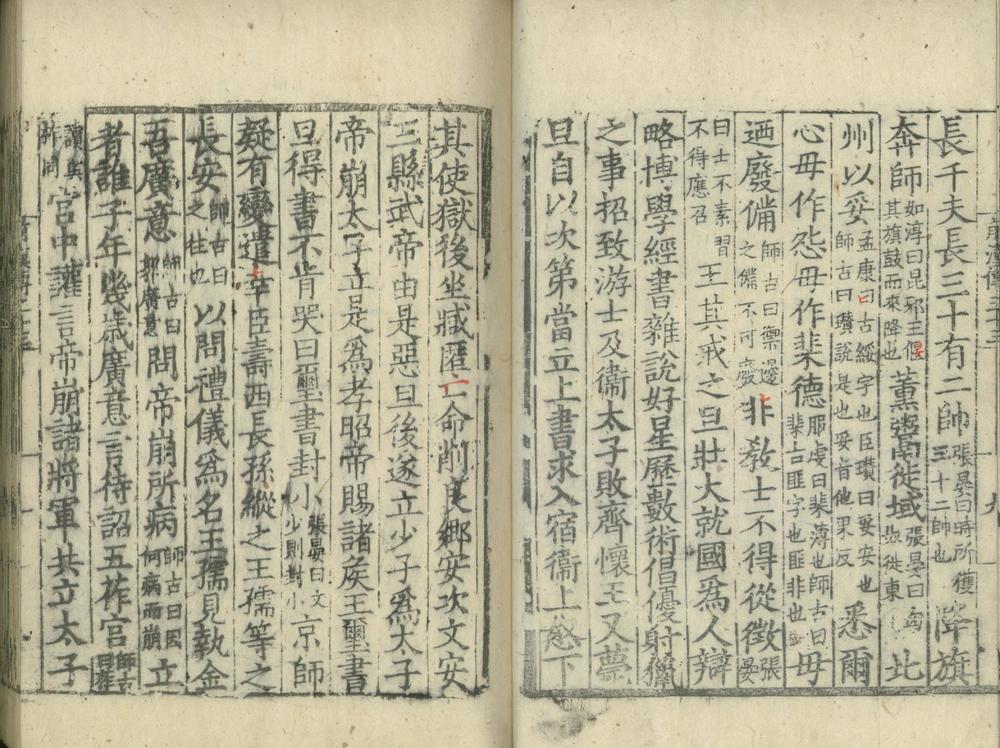 長千夫長三十有二帥張晏曰時所獲三十二帥也降旗
奔師如淳曰昆邪王偃其旗鼓而來降也薰鬻徙域張晏曰匈奴徙東北
州以妥孟康曰古綏字也臣瓚曰妥安也師古曰瓚說是也妥音他果反悉爾
心毋作怨毋作棐德服虔曰棐薄也師古曰棐古匪字也匪非也毋
迺廢備師古曰禦邊之備不可廢非教士不得從徵張晏
曰士不素習不得應召王其戒之旦壯大就國為人辯
略博學經書雜說好星曆數術倡優射獵
之事招致游士及衞太子敗齊懷王又薨
旦自以次第當立上書求入宿衞上怒下
其使獄後坐臧匿亡命削良鄉安次文安
三縣武帝由是惡旦後遂立少子為太子
帝崩太子立是為孝昭帝賜諸侯王璽書
旦得書不肯哭曰璽書封小張晏曰文少則封小京師
疑有變遣幸臣壽西長孫縱之王孺等之
長安師古曰之往也以問禮儀為名王孺見執金
吾廣意師古曰郭廣意問帝崩所病師古曰因何病而崩立
者誰子年幾歲廣意言待詔五莋宮師古曰莋
讀與柞同宮中讙言帝崩諸將軍共立太子